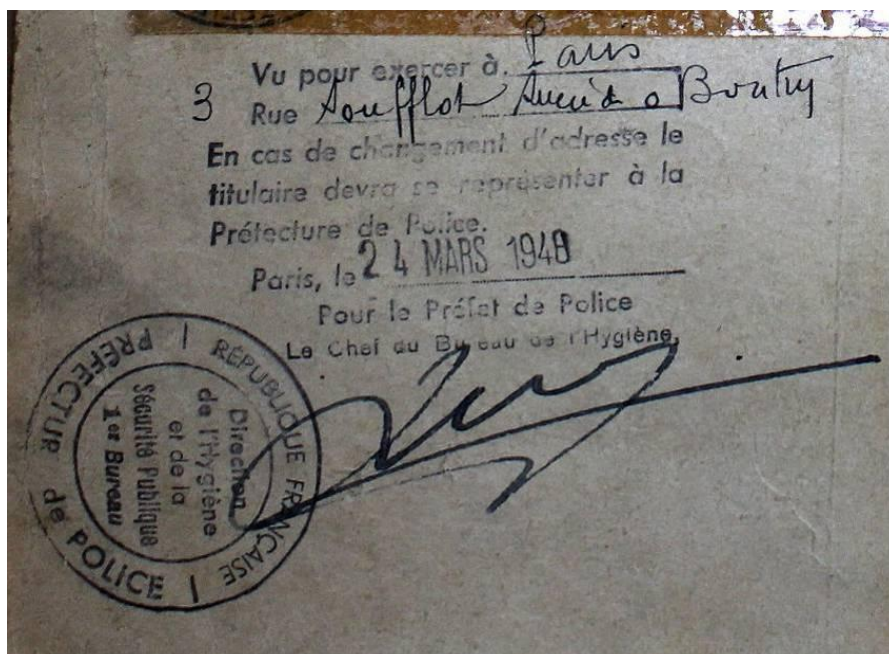 Vu pour exercer à Paris
3 Rue Soufflot Succède à Boutry
En cas de changement d'adresse le
titulaire devra se représenter à la
Préfecture de Police.
Paris, le 24 MARS 1948
Pour le Préfet de Police
Le Chef du Bureau de l'Hygiène,
RÉPUBLIQUE FRANÇAISE | PRÉFECTURE de POLICE |
Direction
de l'Hygiène
et de la
Sécurité Publique
1er Bureau